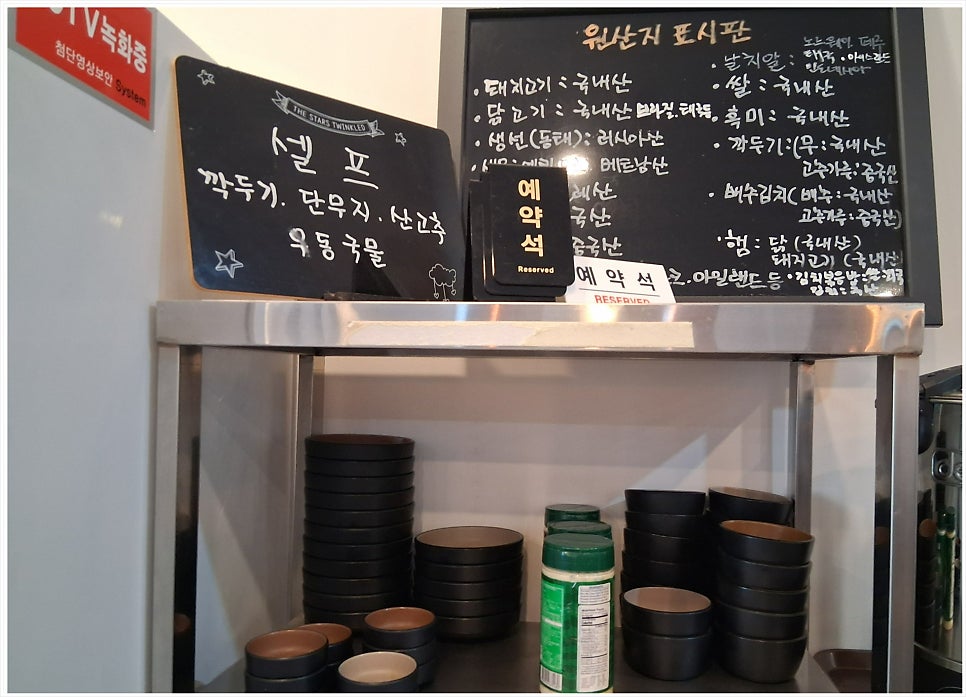 TV녹화중
첨단영상보안 System
THE STARS TWINKLED
셀프
깍두기. 단무지. 산고추
우동국물
예약석
Reserved
예약석
RESERVED
원산지 표시판
돼지고기 : 국내산
닭고기 : 국내산
생선(동태) : 러시아산
베트남산
국산
중국산
아일랜드 등
날치알 :
인도네시아
쌀 : 국내산
흑미 : 국내산
깍두기:(무:국내산
고추가루:중국산
배추김치(배추:국내산
고추가루:중국산)
햄 : 닭(국내산)
돼지고기(국내산)